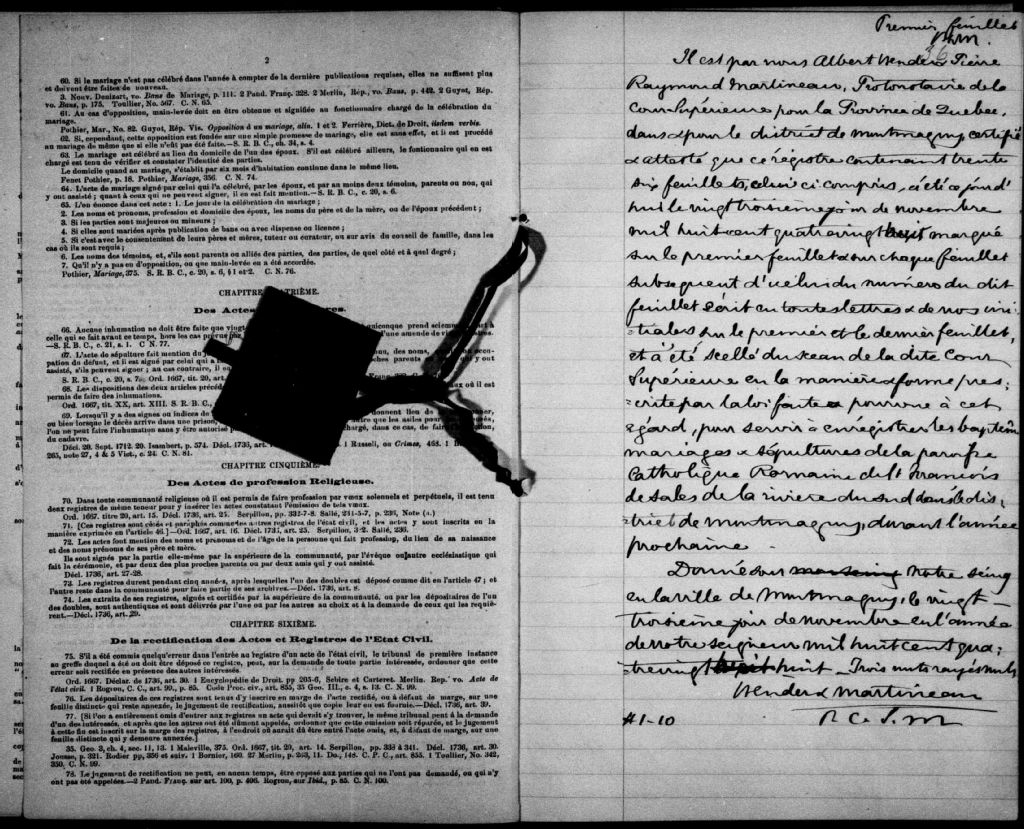 2
60. Si le mariage n'est pas célébré dans l'année à compter de la dernière publications requises, elles ne suffisent plus
et doivent être faites de nouveau.
3. Nouv. Denizart, vo. Bans de Mariage, p. 111. 2 Pand. Franç. 328. 2 Merlin, Rép., vo. Bans, p. 442. 2 Guyot, Rép.
vo. Bans, p. 175. Toullier, No. 567. C. N. 65.
61. Au cas d'opposition, main-levée doit en être obtenue et signifiée au fonctionnaire chargé de la célébration du
mariage.
Pothier, Mar., No. 82. Guyot, Rép. Vis. Opposition à un mariage, alin. 1 et 2. Ferrière, Dict. de Droit, iisdem verbis.
62. Si, cependant, cette opposition est fondée sur une simple promesse de mariage, elle est sans effet, et il est procédé
au mariage de même que si elle n'eût pas été faite.—S. R. B. C., ch. 34, s. 4.
63. Le mariage est célébré au lieu du domicile de l'un des époux. S'il est célébré ailleurs, le fontionnaire qui en est
chargé est tenu de vérifier et constater l'identité des parties.
Le domicile quant au mariage, s'établit par six mois d'habitation continue dans le même lieu.
Fenet Pothier, p. 18. Pothier, Mariage, 356. C. N. 74.
64. L'acte de mariage signé par celui qui l'a célébré, par les époux, et par au moins deux témoins, parents ou non, qui
y ont assisté; quant à ceux qui ne peuvent signer, il en est fait mention.—S. R. B. C., c. 20, s. 6.
65. L'on énonce dans cet acte: 1. Le jour de la célébration du mariage;
2. Les noms et prenoms, profession et domicile des époux, les noms du père et de la mère, ou de l'époux précédent;
3. Si les parties sont majeures ou mineures;
4. Si elles sont mariées après publication de bans ou avec dispense ou licence;
5. Si c'est avec le consentement de leurs pères et mères, tuteur ou curateur, ou sur avis du conseil de famille, dans les
cas où ils sont requis;
6. Les noms des témoins, et, s'ils sont parents ou alliés des parties, des parties, de quel côté et à quel degré;
7. Qu'il n'y a pas eu d'opposition, ou que main-levée en a été accordée.
Pothier, Mariage, 375. S. R. B. C., c. 20, s. 6, § 1 et 2. C. N. 76.
CHAPITRE
Des Actes
66. Aucune inhumation ne doit être faite que vingt
celui qui se fait avant ce temps, hors les cas
—S. R. B. C., c. 21, s. 1. C. N. 77.
67. L'acte de sépulture fait mention du
pation du défunt, et il est signé par celui qui a
assisté, s'ils peuvent signer; au cas contraire, il en
S. R. B. C., c. 20, s. 7. Ord. 1667, tit. 20, art.
68. Les dispositions des deux articles précéd
permis de faire des inhumations.
Ord. 1667, tit. XX, art. XIII. S. R. B. C.,
69. Lorsqu'il y a des signes ou indices de
ou bien lorsque le décès arrive dans une prison,
l'on ne peut faire l'inhumation sans y être autorisé
du cadavre.
Décl. 20. Sept. 1712. 20. Isambert, p. 574. Décl. 1736, art. 1 Russell, on Crimes, 468. 1 B
265, note 27, 4 & 5 Vict., c. 24. C. N. 81.
CHAPITRE CINQUIÈME.
Des Actes de profession Religieuse.
70. Dans toute communauté religieuse où il est permis de faire profession par vœux solennels et perpétuels, il est tenu
deux registres de même teneur pour y insérer les actes constatant l'émission de tels vœux.
Ord. 1667. titre 20, art. 15. Décl. 1736, art. 25. Serpillon, pp. 337-7-8. Sallé, 231-5-7, p. 236, Note (a.)
71. [Ces registres sont côtés et paraphés comme les autres registres de l'état civil, et les actes y sont inscrits en la
manière exprimée en l'article 46.]—Ord. 1667, art. 16. Décl. 1736, art. 25. Serpillon, 3-2. Sallé, 236.
72. Les actes font mention des noms et prenoms et de l'âge de la personne qui fait profession, du lieu de sa naissance
et des noms prénoms de ses père et mère.
Ils sont signés par la partie elle-même par la supérieure de la communauté, par l'évêque ou l'autre ecclésiastique qui
fait la cérémonie, et par deux des plus proches parents ou par deux amis qui y ont assisté.
Décl. 1736, art. 27-28.
73. Les registres durent pendant cinq années, après lesquelles l'un des doubles est déposé comme dit en l'article 47; et
l'autre reste dans la communauté pour faire partie de ses archives.—Décl. 1736, art. 8.
74. Les extraits de ses registres, signés et certifiés par la supérieure de la communauté, ou par les dépositaires de l'un
des doubles, sont authentiques et sont délivrés par l'une ou par les autres au choix et à la demande de ceux qui les requiè-
rent.—Décl. 1736, art. 29.
CHAPITRE SIXIÈME.
De la rectification des Actes et Registres de l'Etat Civil.
75. S'il a été commis quelqu'erreur dans l'entrée au registre d'un acte de l'état civil, le tribunal de première instance
au greffe duquel a été ou doit être déposé ce registre, peut, sur la demande de toute partie intéressée, ordonner que cette
erreur soit rectifiée en présence des autres intéressés.
Ord. 1667. Déclar. de 1736, art. 30. 1 Encyclopédie de Droit. pp 205-6, Sebire et Carteret. Merlin. Rep. vo. Acte de
l'état civil. 1 Rogron, C. C., art. 99., p. 85. Code Proc. civ., art. 855, 35 Geo. III., c. 4, s. 13. C. N. 99.
76. Les dépositaires de ces registres sont tenus d'y inscrire en marge de l'acte rectifié, ou à défaut de marge, sur une
feuille distincte qui reste annexée, le jugement de rectification, aussitôt que copie leur en est fournie.—Décl. 1736, art. 39.
77. [Si l'on a entièrement omis d'entrer aux registres un acte qui devait s'y trouver, le même tribunal peut à la demande
d'un des intéressés, et après que les autres ont été dûment appelés, ordonner que cette omission soit réparée, et le jugement
à cette fin est inscrit sur la marge des registres, à l'endroit où aurait dû être entré l'acte omis, et, à défaut de marge, sur une
feuille distincte qui y demeure annexée.]
35. Geo. 3, ch. 4, sec. 11, 13. 1 Maleville, 375. Ord. 1667, tit. 20, art. 14. Serpillon, pp. 338 à 341. Décl. 1736, art. 30.
Jousse, p. 321. Rodier pp. 356 et suiv. 1 Bornier, 160. 27 Merlin, p. 263, 11. Do., 148. C. P. C., art. 855. 1 Toullier, No. 342,
350. C. N. 99.
78. Le jugement de rectification ne peut, en aucun temps, être opposé aux parties qui ne l'ont pas demandé, ou qui n'y
ont pas été appelées.—2 Pand. Franç. sur art. 100, p. 406. Rogron, sur Ibid., p. 85. C. N. 100.
Premier feuillet
36
Il est par nous Albert Pierre
Raymond Martineau, Protonotaire de la
Cour Supérieure pour la Province de Quebec,
dans & pour le district de Montmagny certifié
& attesté que ce régistre contenant trente
six feuillets, celui ci compris, a été ce jourd'
hui le vingt troisième jour de novembre
mil huit cent quatrevingt huit marqué
sur le premier feuillet & sur chaque feuillet
subsequent d'icelui du numéro du dit
feuillet écrit en toutes lettres & de nos ini-
tiales sur le premier et le dernier feuillet,
et a été scellé du sceau de la dite Cour
Supérieure en la manière & forme pres:
crite par la loi faite & pourvue à cet
égard, pour servir à enregistrer les baptêmes
mariages & sépultures de la paroisse
Catholique Romaine de St François
de Sales de la riviere du Sud dans le dis
trict de Montmagny, durant l'année
prochaine.
Donné sous notre seing
en la ville de Montmagny, le vingt
troisieme jour de novembre en l'année
de notre seigneur mil huit cent qua
trevingt huit. Trois mots rayés nuls
Martineau
P C. S. M
#1-10